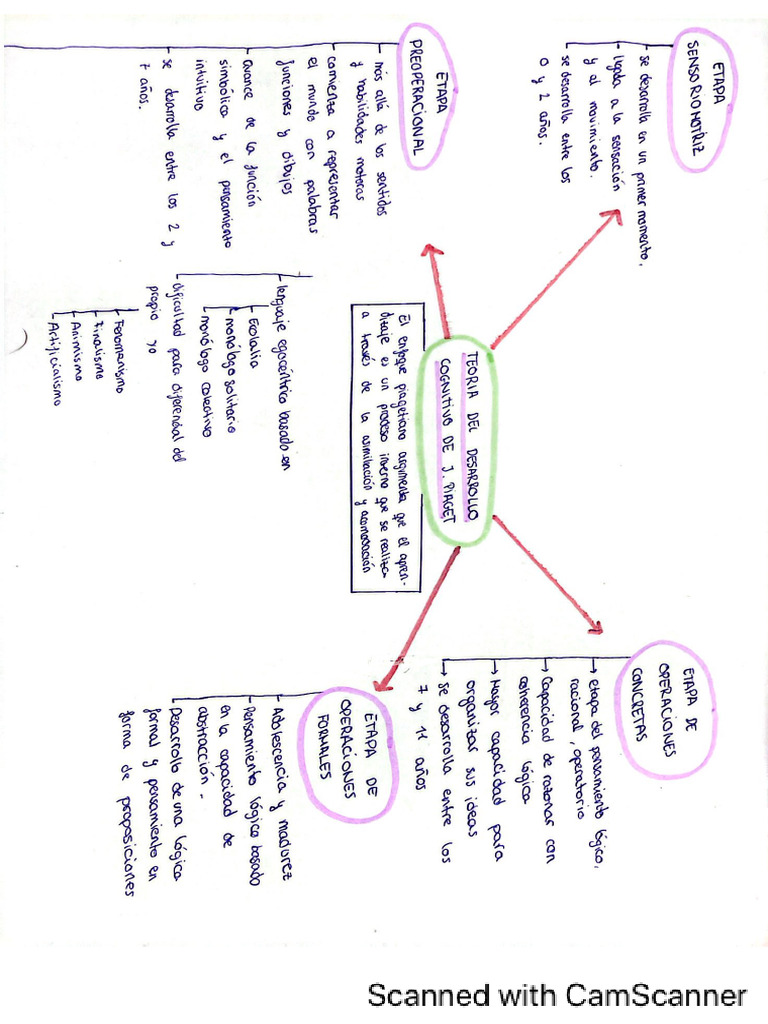 TEORIA DEL DESARROLLO
COGNITIVO DE J. PIAGET
El enfoque piagetiano argumenta que el apren-
dizaje es un proceso interno que se realiza
a través de la asimilación y acomodación
ETAPA
SENSORIOMOTRIZ
- se desarrolla en un primer momento.
- ligada a la sensación
y al movimiento.
- se desarrolla entre los
0 y 2 años.
ETAPA
PREOPERACIONAL
- más alla de los sentidos
y habilidades motoras
- comienza a representar
el mundo con palabras
funciones y dibujos
- avance de la función
simbólica y el pensamiento
intuitivo
- se desarrolla entre los 2 y
7 años.
- lenguaje egocéntrico basado en
- Ecolalia
- monólogo solitario
- monólogo colectivo
- dificultad para diferencial del
propio yo
- Fenomenismo
- Finalismo
- Animismo
- Artificialismo
ETAPA DE
OPERACIONES
CONCRETAS
→ etapa del pensamiento lógico,
racional, operatorio
→ Capacidad de razonar con
coherencia lógica
→ Mayor capacidad para
organizar sus ideas
→ se desarrolla entre los
7 y 11 años
ETAPA DE
OPERACIONES
FORMALES
- Adolescencia y madurez
- Pensamiento lógico basado
en la capacidad de
abstracción.
- Desarrollo de una lógica
formal y pensamiento en
forma de proposiciones
Scanned with CamScanner